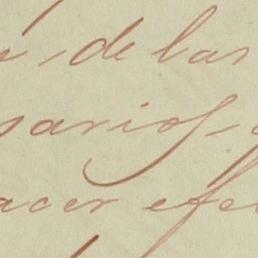 de las
sarios,
acer efe